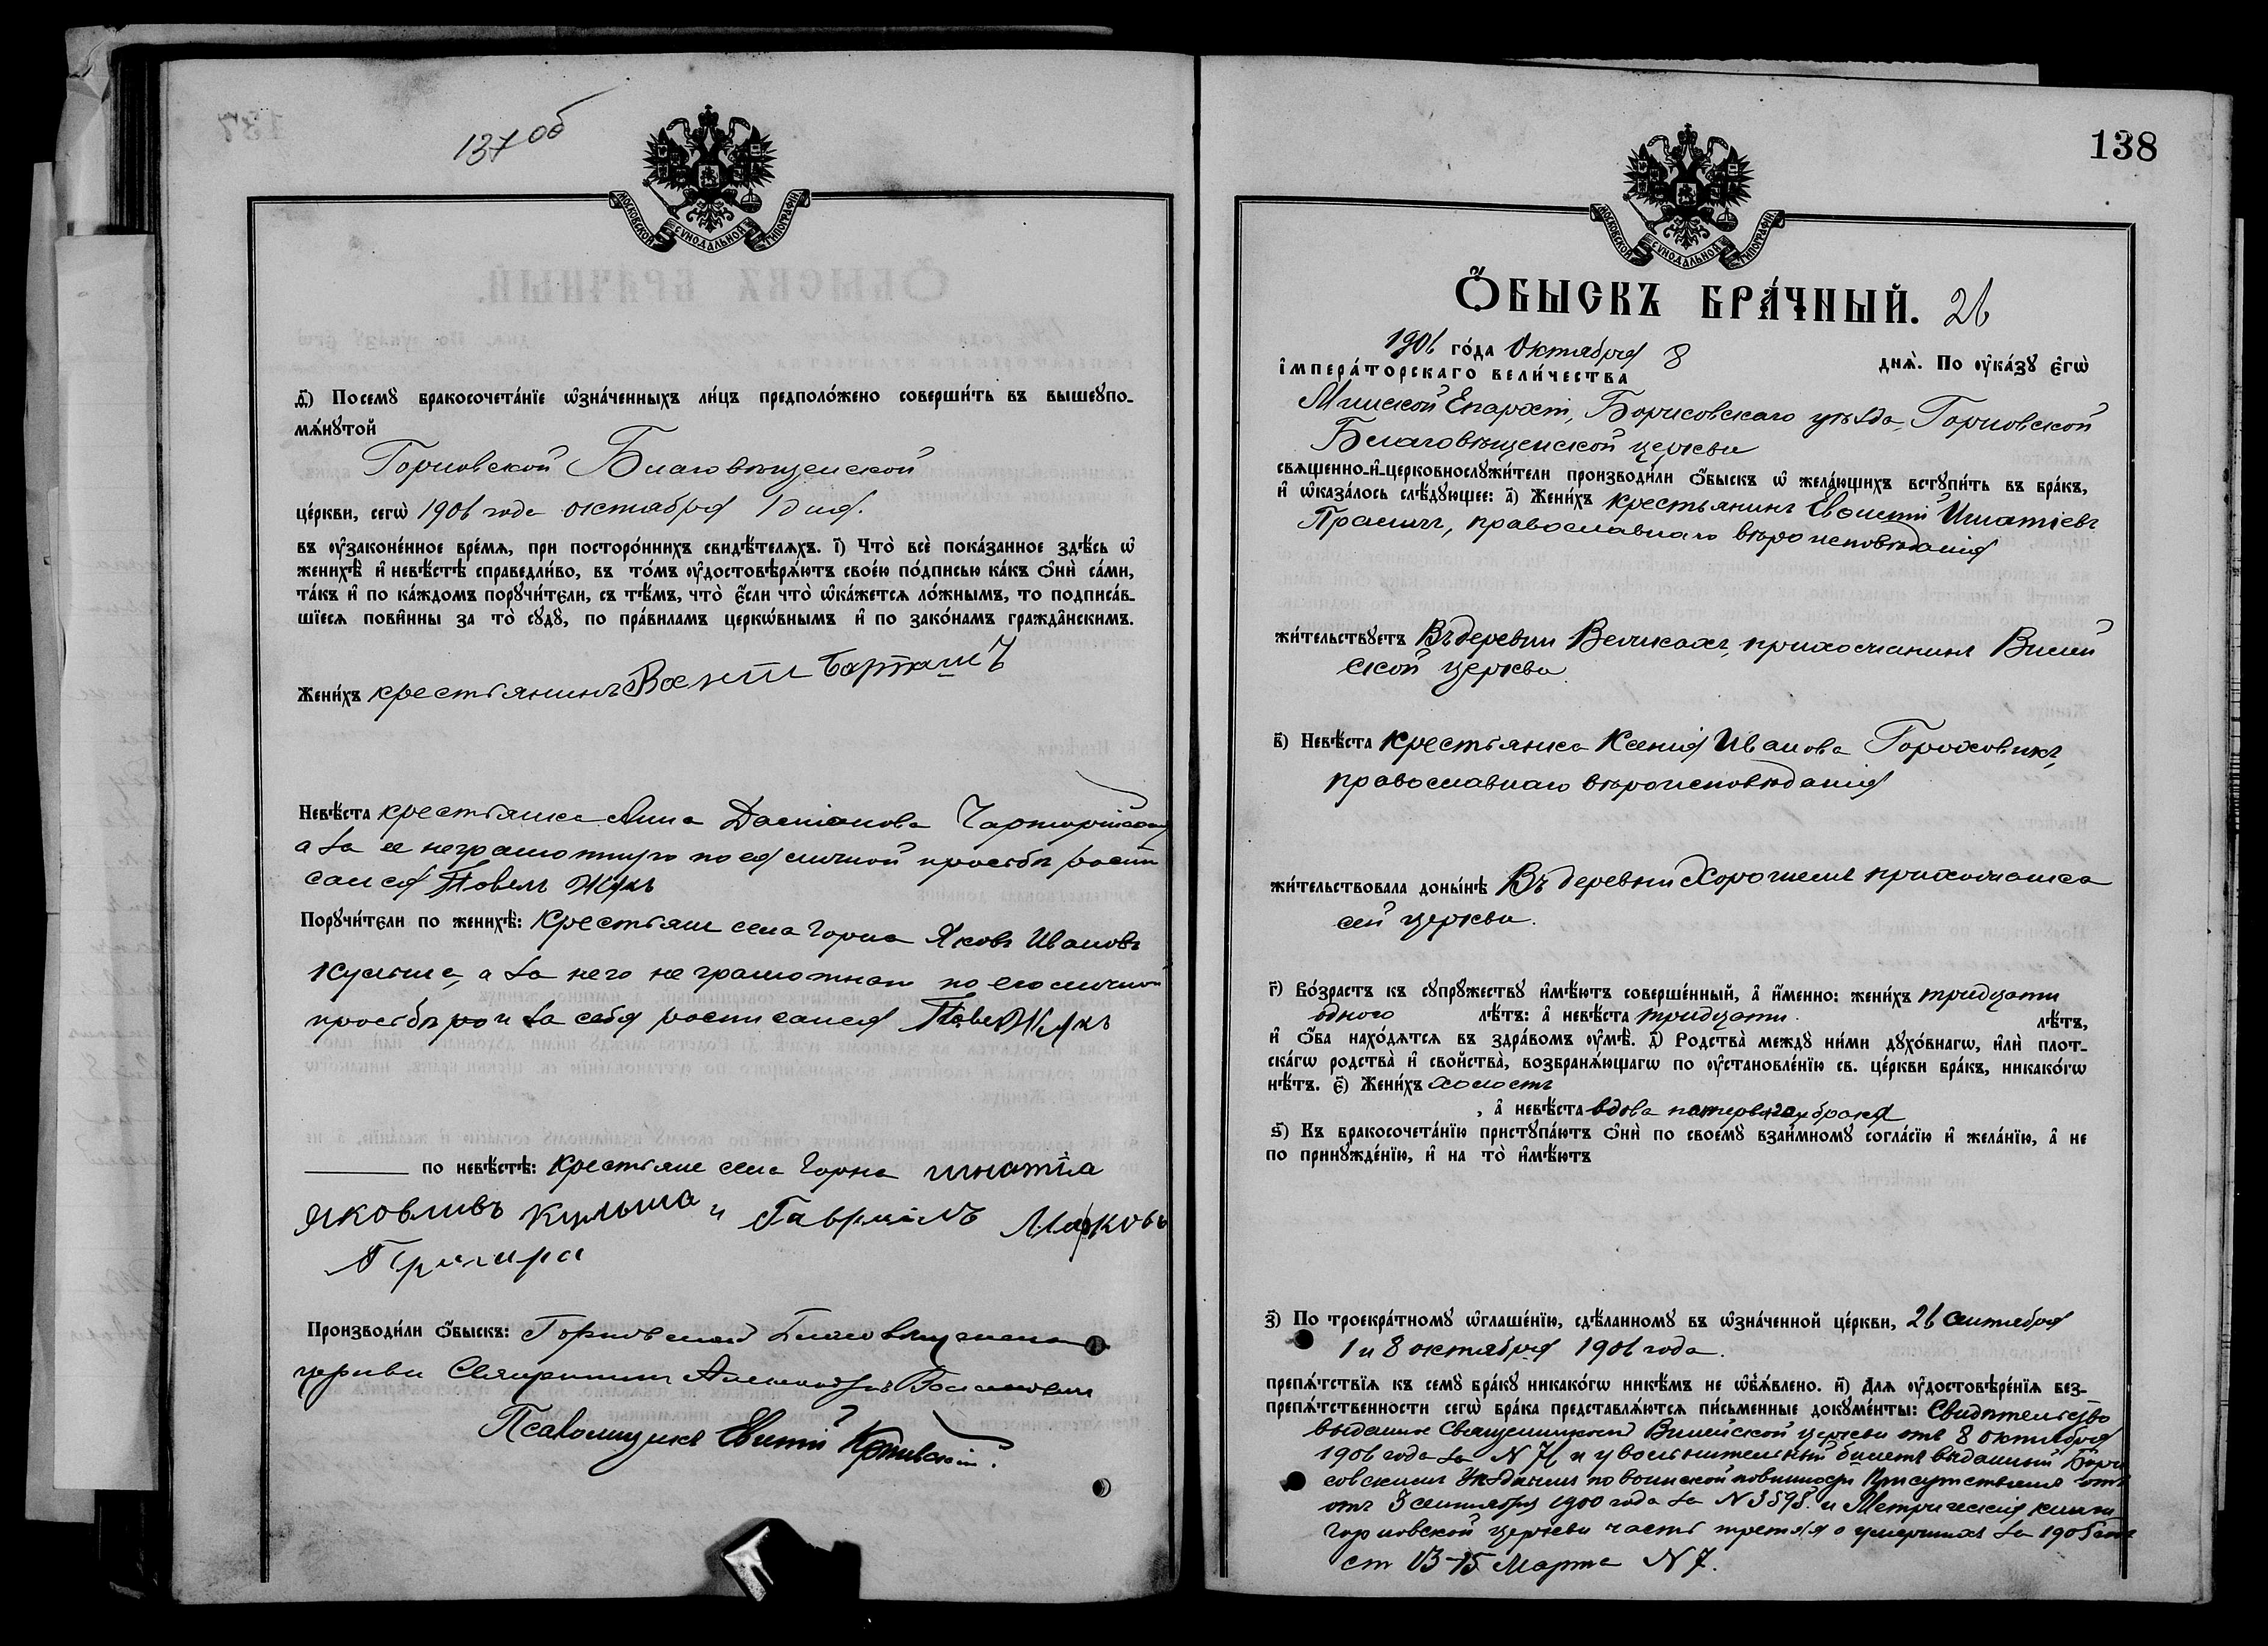 137 об
МОСКОВСКОЙ СѴНОДАЛЬНОЙ ТИПОГРАФІИ
д҃) Посемꙋ бракосочета́нїе ѡ҆зна́ченныхъ ли́цъ предполо́жено соверши́ть въ вышеꙋпо-
мѧ́нꙋтой
Горновской Благовѣщенской
це́ркви, сегѡ̀ 1906 года октября 1 дня.
въ ᲂу҆законе́нное вре́мѧ, при посторо́ннихъ свидѣ́телѧхъ. і҃) Что̀ всѐ пока́занное здѣ́сь ѡ҆
женихѣ̀ и҆ невѣ́стѣ справедли́во, въ то́мъ ᲂу҆достовѣрѧ́ютъ свое́ю по́дписью ка́къ ѻ҆нѝ са́ми,
та́къ и҆ по ка́ждомъ порꙋчи́тели, съ тѣ́мъ, что̀ є҆́сли что̀ ѡ҆ка́жетсѧ ло́жнымъ, то подписа́в-
шїесѧ пови́нны за то̀ сꙋдꙋ̀, по пра́виламъ церкѡ́внымъ и҆ по зако́намъ гражда̑нскимъ.
Жени́хъ крестьянинъ Барташъ
Невѣ́ста крестьянка Анна
а за ея неграмотную по ея личной просьбѣ роспи
сался Павелъ Жукъ
Порꙋчи́тели по женихѣ̀: Крестьяне села Горна Яковъ Ивановъ
Кульша, а за него неграмотнаго по его личной
просьбѣ и за себя росписался Павелъ Жукъ
по невѣ́стѣ: Крестьяне села Горна Игнатій
Яковливъ Кульша и Гавріилъ Марковъ
Производи́ли ѻ҆́быскъ: Горновской Благовѣщенской
церкви Священникъ Александръ
Псаломщикъ Евгеній
138
МОСКОВСКОЙ СѴНОДАЛЬНОЙ ТИПОГРАФІИ
Ѻ҆́БЫСКЪ БРА́ЧНЫЙ. 26
1906 го́да Октября 8 днѧ̀. По ᲂу҆ка́зꙋ є҆гѡ̀
і҆мпера́торскаго вели́чества
Минской Епархіи, Борисовскаго уѣзда, Горновской
Благовѣщенской церкви
свѧще́нно-и҆-церковнослꙋжи́тели производи́ли ѻ҆́быскъ ѡ҆ жела́ющихъ встꙋпи́ть въ бра́къ,
и҆ ѡ҆каза́лось слѣ́дꙋющее: а҃) Жени́хъ крестьянинъ Игнатіевъ
православнаго вѣроисповѣданія
жи́тельствꙋетъ Въ деревни прихожанинъ Вилей
ской церкви.
в҃) Невѣ́ста крестьянка Ксенія Иванова Гороховикъ,
православнаго вѣроисповѣданія
жи́тельствовала доны́нѣ Въ деревни прихожанка
сей церкви.
г҃) Во́зрастъ къ сꙋпрꙋ́жествꙋ и҆мѣ́ютъ соверше́нный, а҆ и҆́менно: жени́хъ тридцати
одного лѣ́тъ: а҆ невѣ́ста тридцати лѣ́тъ,
и҆ ѻ҆́ба нахо́дѧтсѧ въ здра́вомъ ᲂу҆мѣ̀. д҃) Родства̀ междꙋ ни́ми дꙋхо́внагѡ, и҆лѝ плот-
ска́гѡ родства̀ и҆ сво́йства, возбранѧ́ющагѡ по ᲂу҆становле́нїю св. це́ркви бра́къ, никако́гѡ
нѣ́тъ. є҃) Жени́хъ холостъ
, а҆ невѣ́ста вдова по первомъ бракѣ
ѕ҃) Къ бракосочета́нїю пристꙋпа́ютъ ѻ҆нѝ по своемꙋ̀ взаи́мномꙋ согла́сїю и҆ жела́нїю, а҆ не
по принꙋжде́нїю, и҆ на то̀ и҆мѣ́ютъ
з҃) По троекра́тномꙋ ѡ҆глаше́нїю, сдѣ́ланномꙋ въ ѡ҆зна́ченной це́ркви, 26 сентября
1 и 8 октября 1906 года.
препѧ́тствїѧ къ семꙋ̀ бра́кꙋ никако́гѡ никѣ́мъ не ѡ҆бъѧ́влено. и҃) Длѧ ᲂу҆достовѣре́нїѧ без-
препѧ́тственности сегѡ̀ бра́ка представлѧ́ютсѧ пи́сьменные докꙋме́нты: Свидѣтельство
выданное Священникомъ Вилейской церкви отъ 8 октября
1906 года за N 71 и увольнительный билетъ выданный Бори
совскимъ Уѣзднымъ по воинской повинности Присутствіемъ отъ
отъ 3 сентября 1900 года за N 3598. и Метрическія книги
Горновской церкви часть третья о умершихъ за 1905
ст 13-15 Марта N 7.